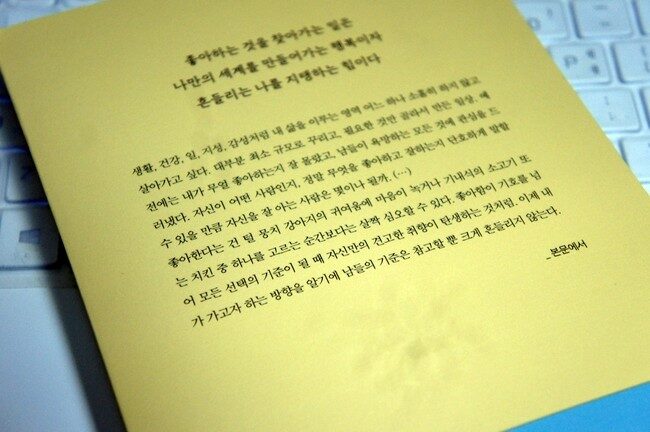 좋아하는 것을 찾아가는 일은
나만의 세계를 만들어가는 행복이자
흔들리는 나를 지탱하는 힘이다
생활, 건강, 일, 지성, 감성처럼 내 삶을 이루는 영역 어느 하나 소홀히 하지 않고
살아가고 싶다. 대부분 최소 규모로 꾸리고, 필요한 것만 골라서 만든 일상. 예
전에는 내가 무얼 좋아하는지 잘 몰랐고, 남들이 욕망하는 모든 것에 관심을 드
러냈다. 자신이 어떤 사람인지, 정말 무엇을 좋아하고 잘하는지 단호하게 말할
수 있을 만큼 자신을 잘 아는 사람은 몇이나 될까. (…)
좋아한다는 건 털 뭉치 강아지의 귀여움에 마음이 녹거나 기내식의 소고기 또
는 치킨 중 하나를 고르는 순간보다는 살짝 심오할 수 있다. 좋아함이 기호를 넘
어 모든 선택의 기준이 될 때 자신만의 견고한 취향이 탄생하는 것처럼. 이제 내
가 가고자 하는 방향을 알기에 남들의 기준은 참고할 뿐 크게 흔들리지 않는다.
_본문에서